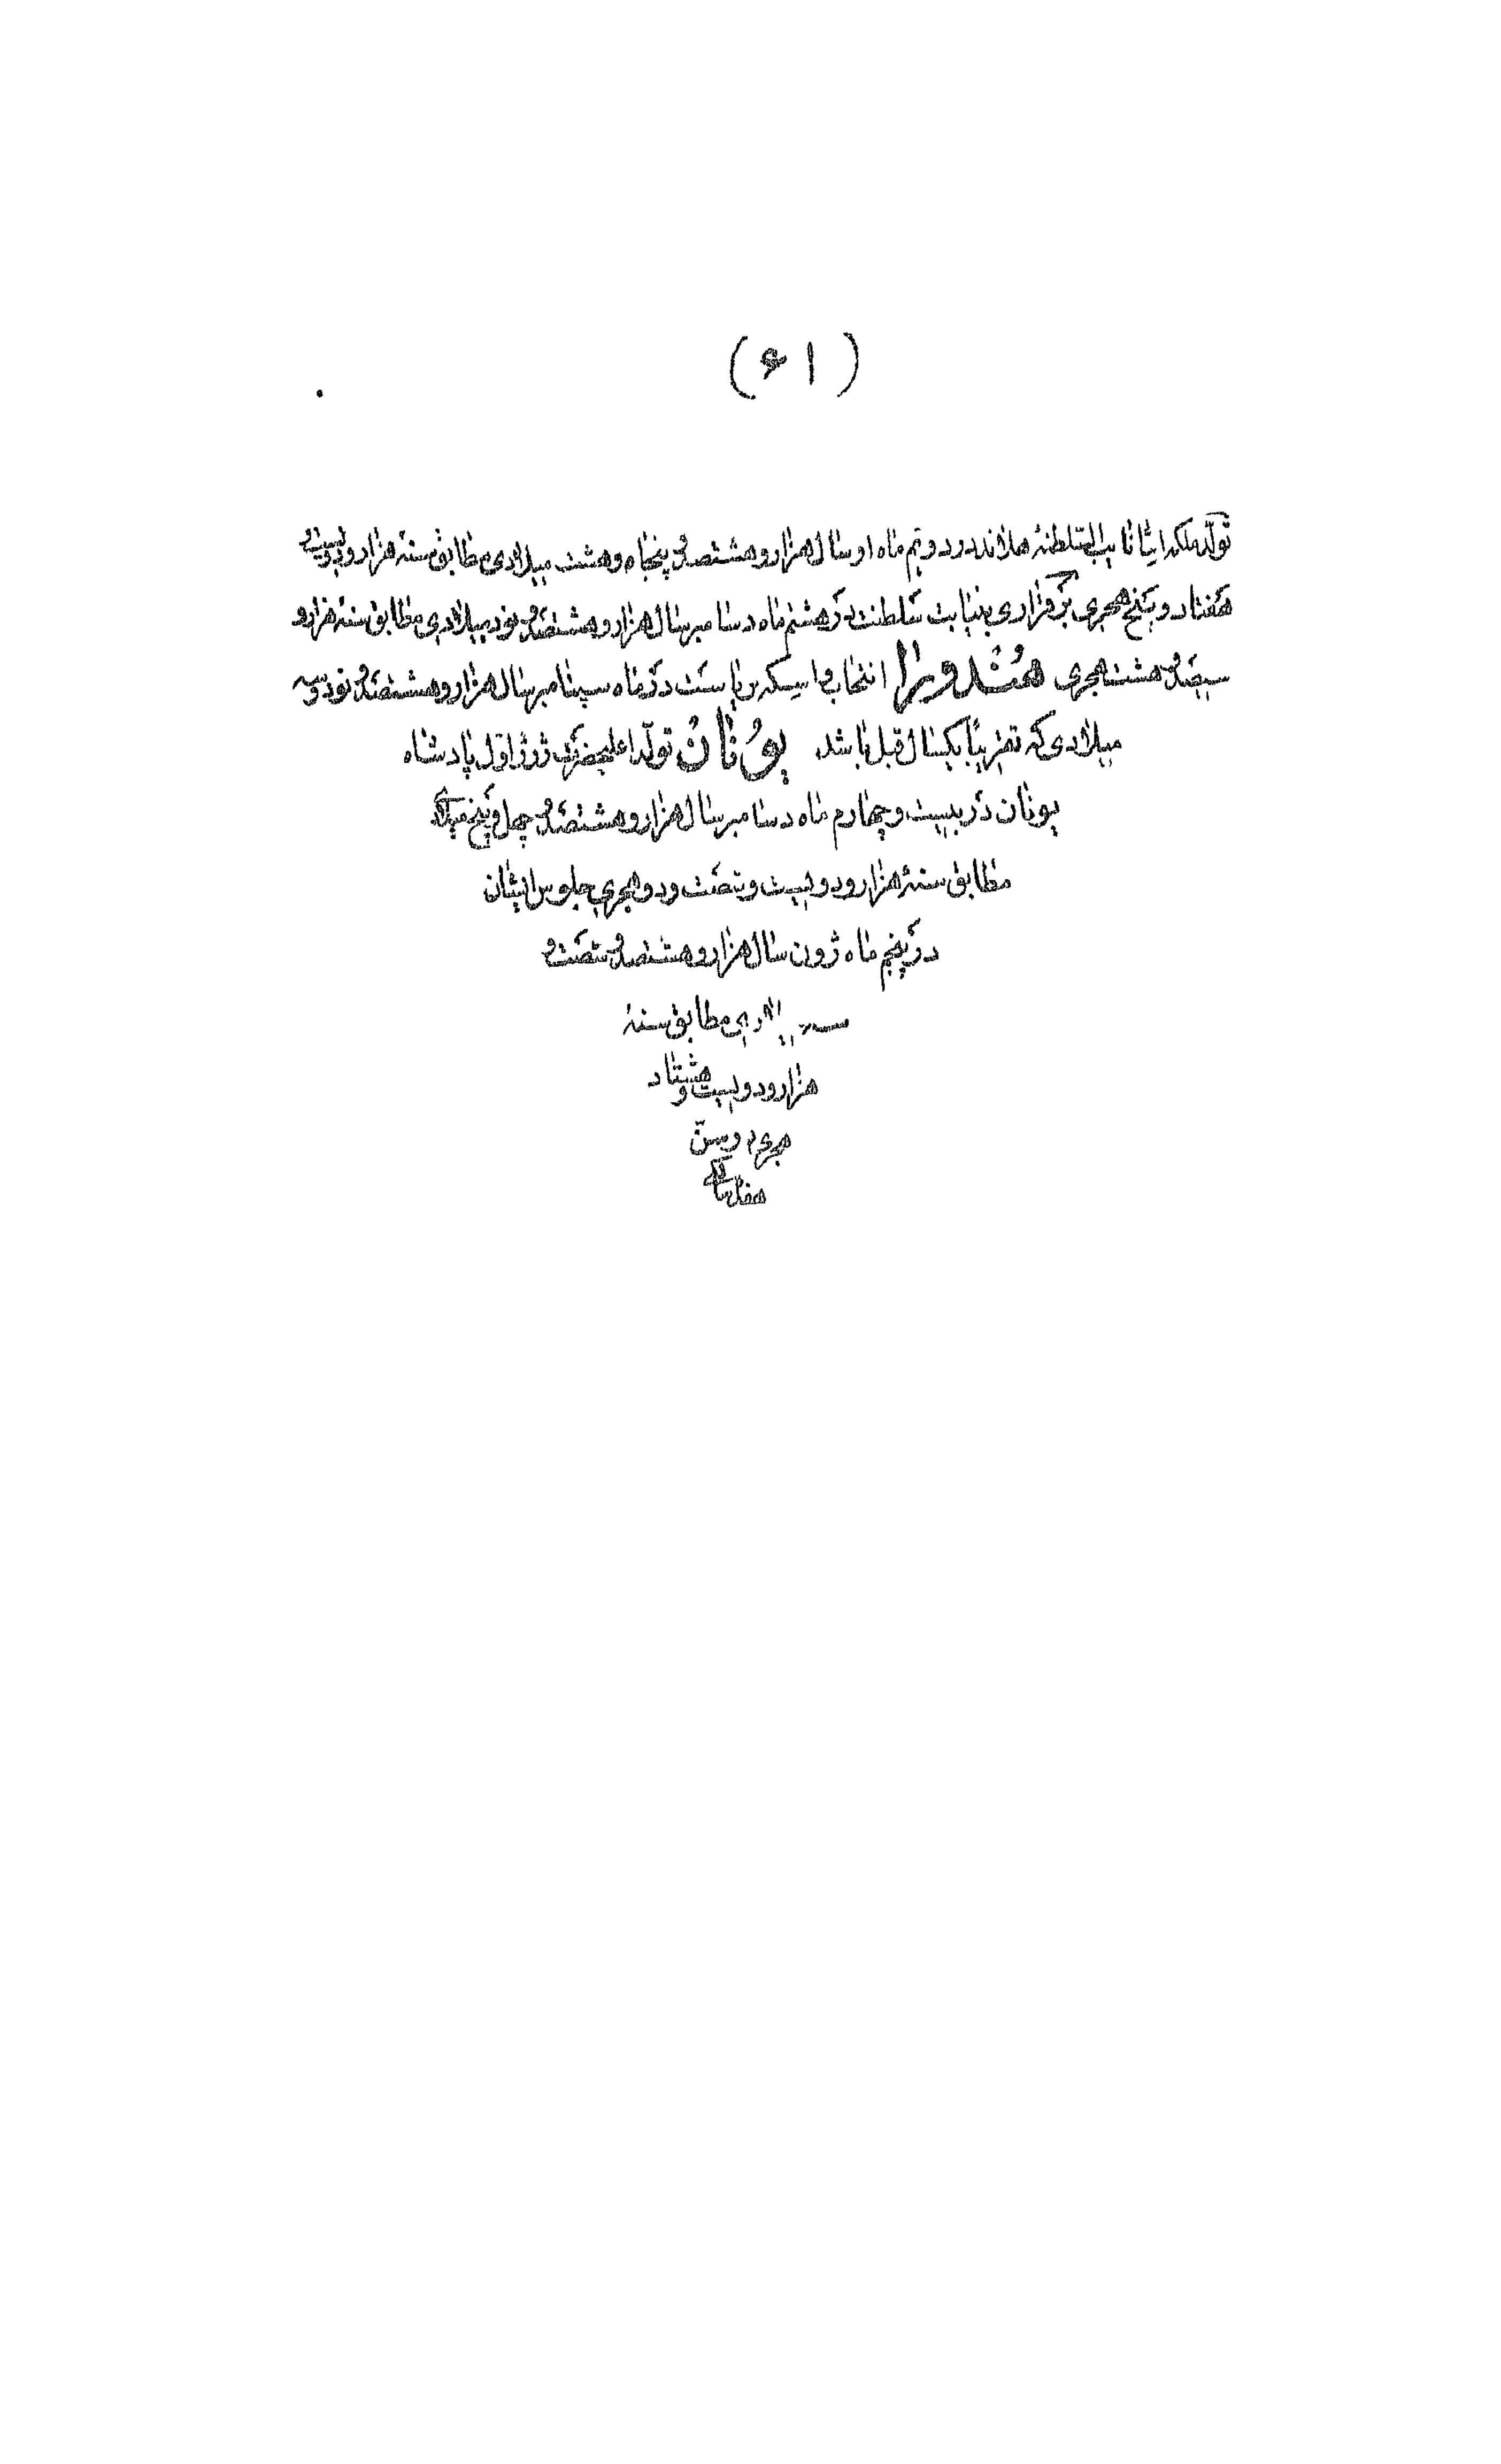 (۶۱)
تولّد ملکه ایشان نایب السّلطنهٔ هلاند در دویم ماه اوسال هزار و هشتصد و پنجاه و هشت میلادی مطابق سنهٔ هزار و دویست و
هفتاد و پنج هجری برقراری بنیابت سلطنت در هشتم ماه دسامبر سال هزار و هشتصد و نود میلادی مطابق سنهٔ هزار و
سیصد و هشت هجری هُندوراز انتخاب واسیکه بریاست در ماه سپتامبر سال هزار و هشتصد و نود و سه
میلادی که تقریباً یکسال قبل باشد یونان تولّد اعلیحضرت ژرژ اوّل پادشاه
یونان در بیست و چهارم ماه دسامبر سال هزار و هشتصد و چهل و پنج میلادی
مطابق سنهٔ هزار و دویست و شصت و دو هجری جلوس ایشان
در پنجم ماه ژون سال هزار و هشتصد و شصت و
سه میلادی مطابق سنهٔ
هزار و دویست و هشتاد
هجری در سنّ
هفده سالگی